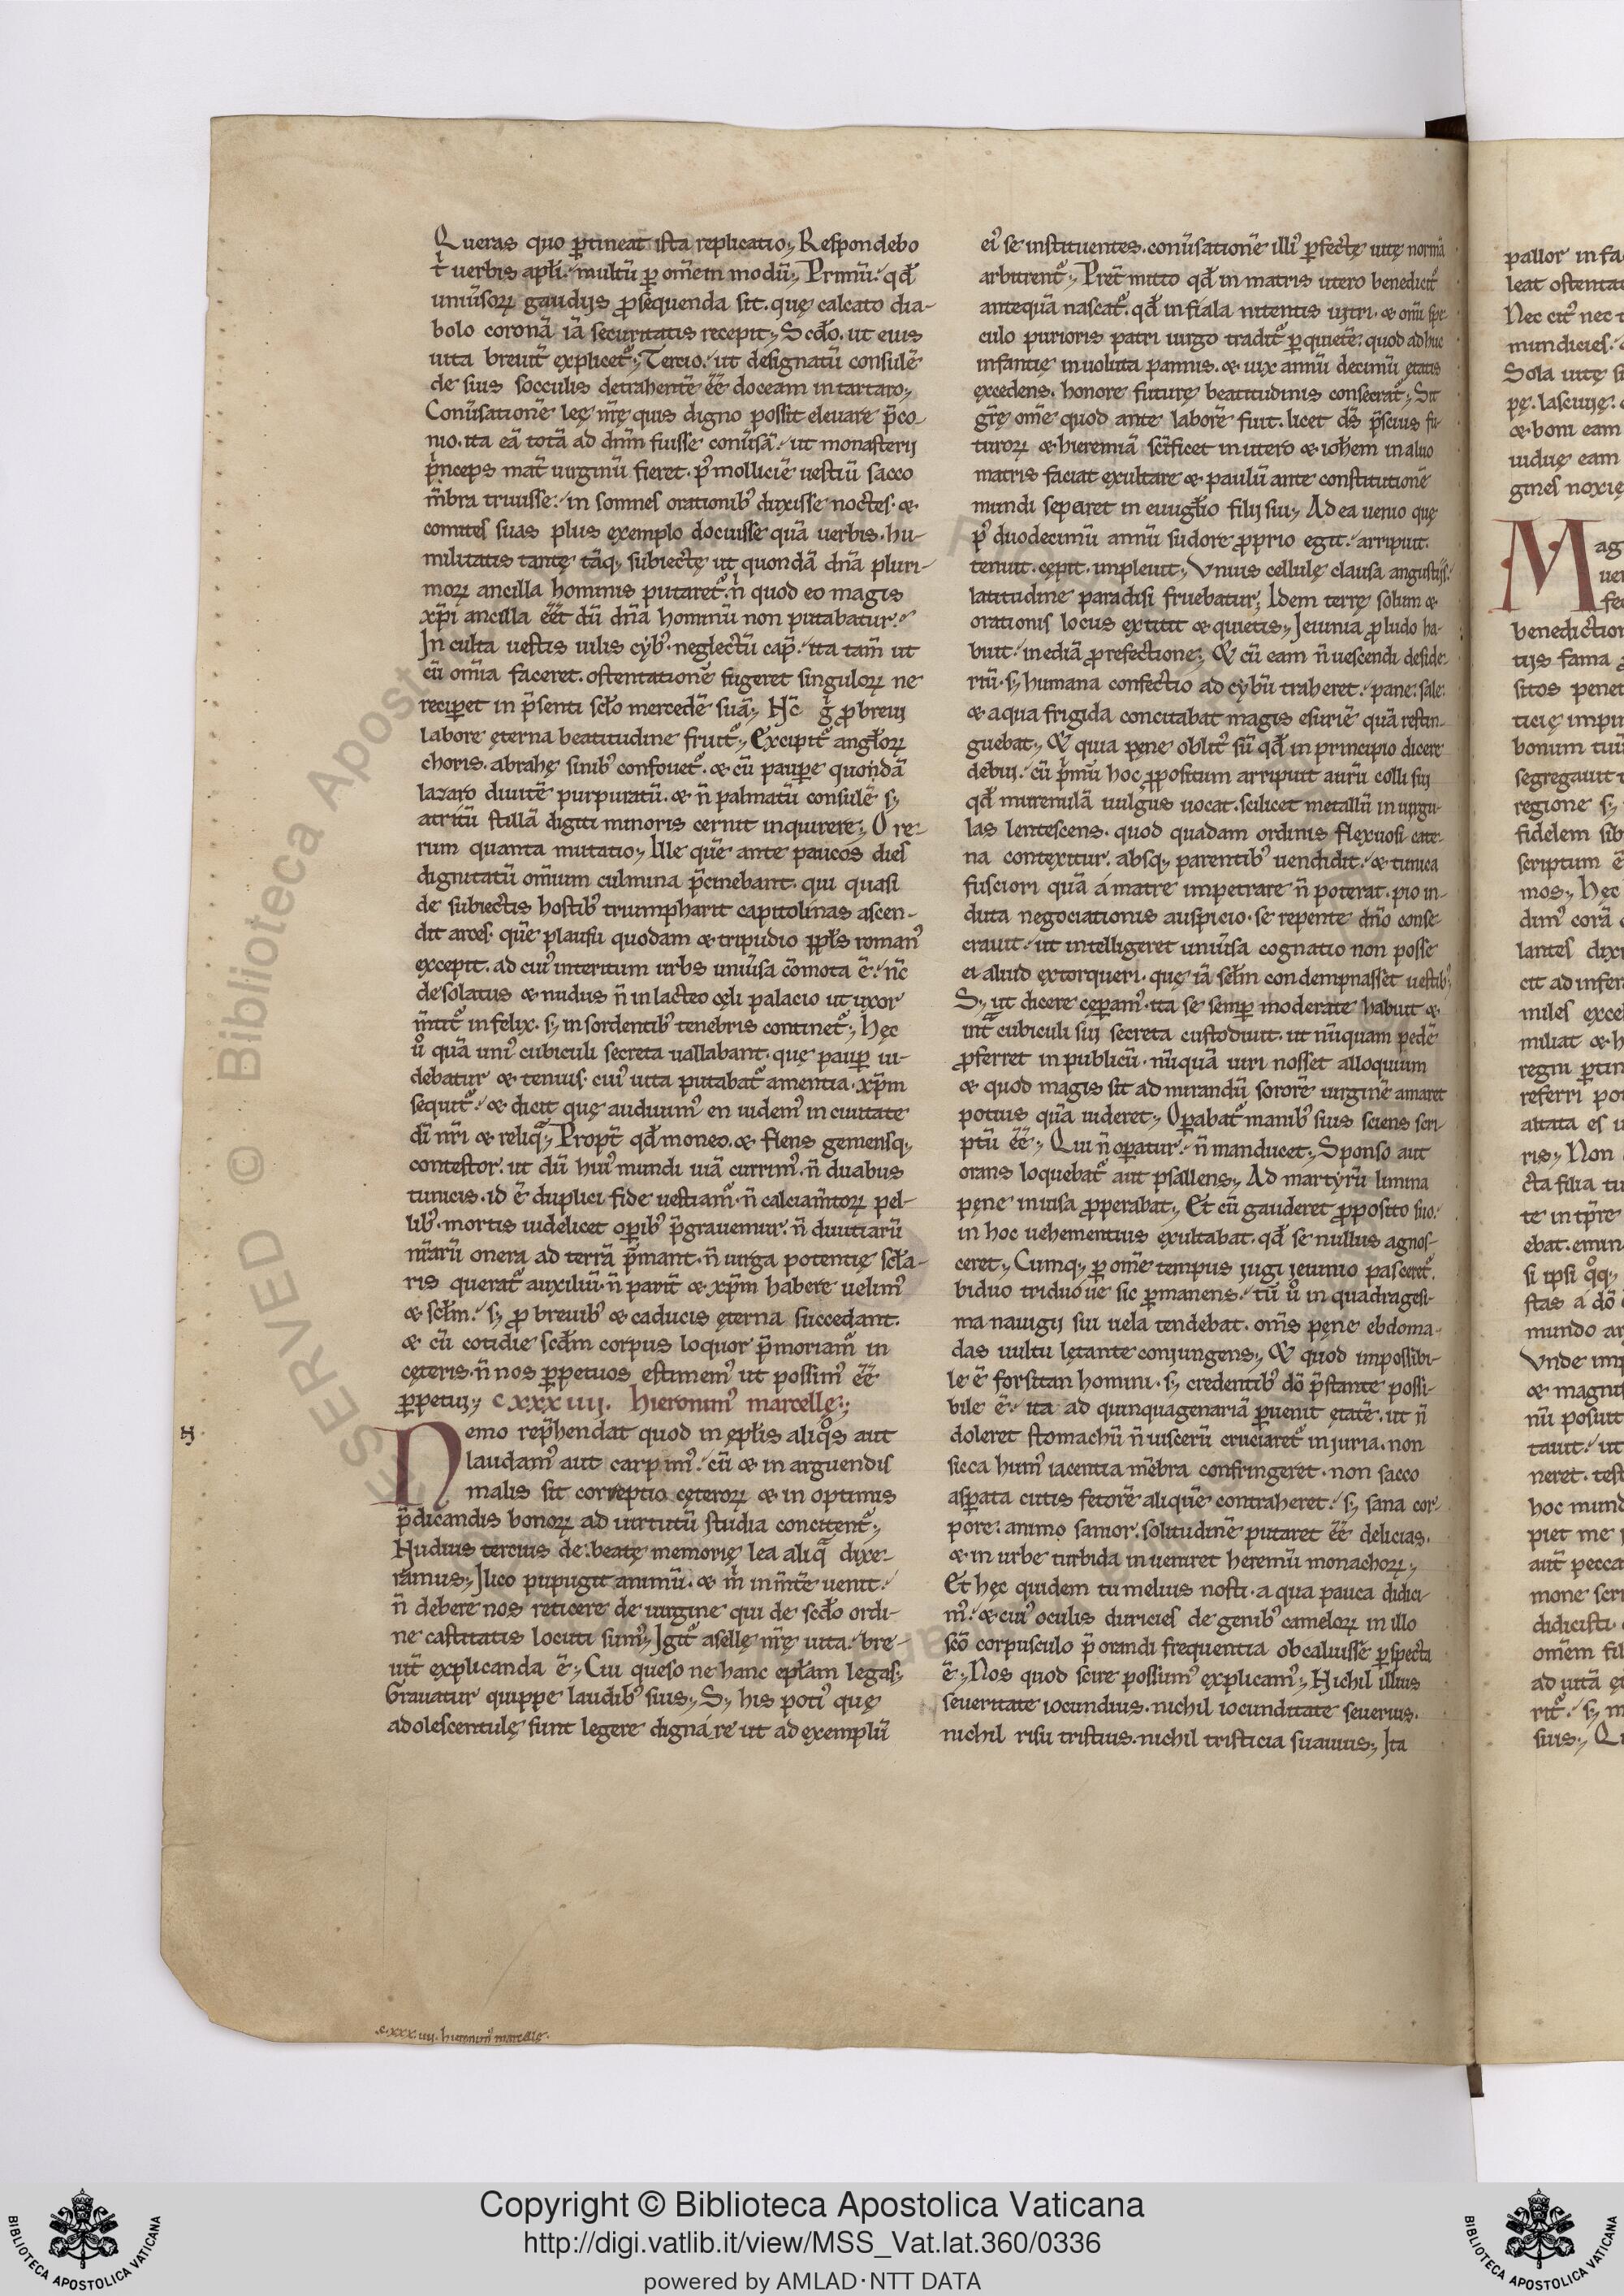 Queras quo ꝑtineat ista replicatio;, Respondebo
t̉ uerbis apl̓i. multū ꝑ om̄em modū;, Primū. qđ
uniūsoꝝ gaudijs ꝓsequenda sit. quę calcato dia-
bolo coronā iā securitatis recepit;, Scđo. ut eius
uita breuit̄ explicet᷑;, Tercio. ut designatū consulē
de suis socculis detrahentē ēē doceam in tartaro;,
Conūsationē leę nr̄ę quis digno possit eleuare p̄co
nio. ita eā totā ad dn̄m fuisse conūsā. ut monasterij
princeps mat̄ uirginū fieret. pꝰ molliciē uestiū sacco
m̄bra triuisse. in somnes orationibꝰ duxisse noctes. &
comites suas plus exemplo docuisse quā uerbis. hu-
militatis tantę tāq; subiectę ut quondā dn̄a pluri-
moꝝ ancilla hominis putaret᷑. n̉ quod eo magis
xp̄i ancilla ēēt dū dn̄a hominū non putabatur.
In culta uestis uilis cybꝰ. neglectū cap̄. ita tam̄ ut
cū om̄ia faceret. ostentationē fugeret singuloꝝ ne
reciꝑet in p̄senti scl̓o mercedē suā;, Nc̄ g̉ ꝓ breui
labore ęterna beatitudine fruit᷑;, Excipit᷑ angl̓oꝝ
choris. abrahę sinibꝰ confouet᷑. & cū pauꝑe quondā
lazaro diuitē purpuratū. & n̄ palmatū consulē s;
atritū stillā digiti minoris cernit inquirere;, O re-
rum quanta mutatio;, Ille quē ante paucos dies
dignitatū omium culmina p̄cinebant. qui quasi
de subiectis hostibꝰ triumpharit capitolinas ascen-
dit arces. quē plausu quodam & tripudio ppl̓s romanꝰ
excepit. ad cuiꝰ interitum urbs uniūsa cōmota ē. nc̄
desolatus & nudus n̄ in lacteo cęli palacio ut uxor
m̄tit᷑ infelix. s; in sordentibꝰ tenebris continet᷑;, Hęc
u̓ quā uniꝰ cubiculi secreta uallabant. quę pauꝑ ui-
debatur & tenuis. cuiꝰ uita putabat᷑ amentia. xp̄m
sequit᷑. & dicit quę audiuimꝰ en uidemꝰ in ciuitate
dī nr̄i & reliq̄;, Propt̄ qđ moneo. & flens gemensq;
contestor. ut dū huiꝰ mundi uiā currimꝰ. n̄ duabus
tunicis. id ē duplici fide uestiam᷑. n̄ calciam̄toꝝ pel-
libꝰ. mortis uidelicet oꝑibꝰ p̄grauemur. n̄ diuitiarū
nr̄arū onera ad terrā p̄mant. n̄ uirga potentię scl̓a-
ris querat᷑ auxiliū. n̄ parit̄ & xp̄m habere uelimꝰ
& scl̓m. s; ꝓ breuibꝰ & caducis ęterna succedant.
& cū cotidie scđm corpus loquor p̄moriam᷑ in
cęteris. n̄ nos ꝑpetuos estimemꝰ ut possimꝰ ēē
ꝑpetui;, cxxxiiij. hieronimꝰ marcellę;,
Nemo rep̄hendat quod in ępl̓is aliq̊s aut
laudamꝰ aut carpimꝰ. cū & in arguendis
malis sit correptio cęteroꝝ & in optimis
p̄dicandis bonoꝝ ad uirtutū studia concitent᷑;,
Nudius tercius de beatę memorię lea aliq̄ dixe-
ramus;, Ilico pupugit animū. & m̉ in m̄tē uenit.
n̄ debere nos reticere de uirgine qui de scđo ordi-
ne castitatis locuti sumꝰ;, Igit᷑ asellę nr̄ę uita. bre-
uit̄ explicanda ē;, Cui queso ne hanc epl̓am legas;
Grauatur quippe laudibꝰ suis;, S; his potiꝰ quę
adolescentulę sunt legere dignare ut ad exemplū
eiꝰ se instituentes. conūsationē illiꝰ ꝑfectę uitę normā
arbitrent᷑;, Pret̄ mitto qđ in matris utero benedicit᷑
antequā nascat᷑. qđ in fiala nitentis uitri. & omi spe-
culo purioris patri uirgo tradit᷑ ꝑ quietē. quod adhuc
infantię inuoluta pannis. & uix annū decimū ętatis
excedens. honore futurę beatitudinis consecrat᷑;, Sit
gr̄ę om̄e quod ante laborē fuit. licet ds̄ p̄scius fu-
turoꝝ & hieremiā scīficet in utero & ioh̄em in aluo
matris faciat exultare & paulū ante constitutionē
mundi separet in euuglł̓io filij sui;, Ad ea uenio quę
pꝰ duodecimū annū sudore ꝓprio egit. arripuit.
tenuit. cępit. impleuit;, Vnius cellulę clausa angustijs.
latitudine paradisi fruebatur; Idem terrę solum &
orationis locus extitit & quietis;, Ieiunia ꝓ ludo ha-
buit. in ediā ꝓ refectione;, & cū eam n̄ uescendi deside-
riū. s; humana confectio ad cybū traheret. pane. sale.
& aqua frigida concitabat magis esuriē quā restin-
guebat;, & quia pęne oblitꝰ sū qđ in principio dicere
debui. cū p̉mū hoc ꝓpositum arripuit aurū colli sui
qđ murenulā uulgus uocat. scilicet metallū in uirgu-
las lentescens. quod quadam ordinis flexuosi cate-
na contexitur. absq; parentibꝰ uendidit. & tunica
fusciori quā á matre impetrare n̄ poterat. pio in-
duta negociationis auspicio. se repente dn̄o conse-
crauit. ut intelligeret uniūsa cognatio non posse
ei aliud extorqueri. quę iā scl̓m condempnasset uestibꝰ;
S; ut dicere cęperamꝰ. ita se semꝑ moderate habuit &
int̄ cubiculi sui secreta custodiuit. ut nūquam pedē
ꝓferret in publicū. nūquā uiri nosset alloquium
& quod magis sit ad mirandū sororē uirginē amaret
potius quā uideret;, Oꝑabat᷑ manibꝰ suis sciens scri-
ptū ēē;, Qui n̄ oꝑatur. n̄ manducet;, Sponso aut
orans loquebat᷑ aut psallens;, Ad martyrū limina
pęne inuisa ꝓperabat;, Et cū gauderet ꝓposito suo.
in hoc uehementius exultabat. qđ se nullus agnos-
ceret;, Cumq; ꝑ om̄e tempus iugi ieiunio pasceret᷑.
biduo triduo ue sic ꝑmanens. tū u̓ in quadragesi-
ma nauigij sui uela tendebat. om̄s pęne ebdoma-
das uultu lętante conjungens;, & quod impossibi-
le ē forsitan homini. s; credentibꝰ dō p̄stante possi-
bile ē. ita ad quinquagenariā ꝑuenit ętatē. ut n̄
doleret stomachū n̄ uiscerū cruciaret᷑ injuria. non
sicca humꝰ iacentia m̄ebra confringeret. non sacco
asꝑata cutis fetorē aliquē contraheret. s; sana cor-
pore. animo sanior. solitudinē putaret ēē delicias.
& in urbe turbida inueniret heremū monachoꝝ;,
Et hęc quidem tu melius nosti. a qua pauca didici-
mꝰ. & cuiꝰ oculis duricies de genibꝰ cameloꝝ in illo
scō corpusculo p̄ orandi frequentia obcaluisse ꝑspecta
ē;, Nos quod scire possumꝰ explicamꝰ;, Nichil illius
seueritate iocundius. nichil iocunditate seuerius.
nichil risu tristius. nichil tristicia suauius;, Ita
c.xxxiiij. hieronimꝰ marcellę.
pallor in fa
leat ostentat
mundicies.
Sola uitę si
pę. lasciuię.
& boni eam
uiduę eam
gines noxię
Mag
benediction
tijs fama
sitos penet
ticię impu
bonum tuū
segregauit
regione s;
fidelem sib
scriptum ē
mos;, Hęc
dimꝰ corā
lantes dixi
cit ad infer
miles excel
miliat & h
regni ꝑtin
referri po
altata es
ris;, Non
cta filia tu
te in tp̄re
ebat. emin
si ipsi q̊q;
stas á dō
mundo ar
Vnde imp
& magnis
nū posuit
tauit. ut
neret. test
hoc mund
piet me
aut̄ pecca
mone scri
didicisti.
om̄em fil
ad uitā
rit᷑. s; m
suis;, Qu
© Biblioteca Apost
ESERVED
Copyright © Biblioteca Apostolica Vaticana
http://digi.vatlib.it/view/MSS_Vat.lat.360/0336
powered by AMLAD·NTT DATA
BIBLIOTECA APOSTOLICA VATICANA
BIBLIOTECA APOSTOLICA VATICANA